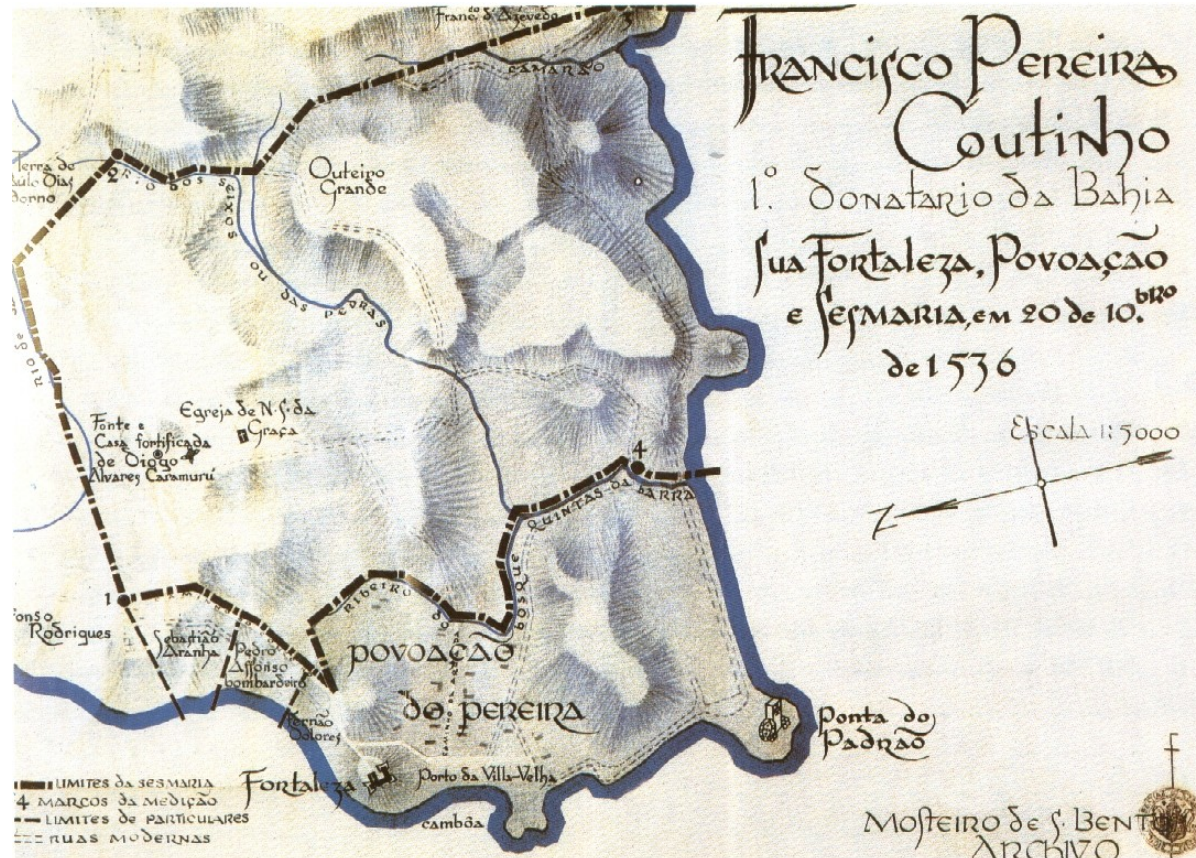 Francisco Pereira
Coutinho
1.º Donatario da Bahia
Sua Fortaleza, Povoação
e Sesmaria, em 20 de 10.bro
de 1536
Escala 1:5000
N
Franc.co d'Azevedo
3
CAMARÃO
Terra de
Dias
dorno
2
RIO DOS SEIXOS
OU DAS PEDRAS
Outeiro
Grande
RIO DE
Egreja de N. S. da
Graça
Fonte e
Casa fortificada
de Diogo
Alvares Caramurú
4
QUINTAS DA BARRA
1
fonso
Rodrigues
Sebastião
Aranha
Pedro
Affonso
bombardeiro
Fernão
Dolores
RIBEIRO DO
BOSQUE
POVOAÇÃO
DO PEREIRA
Fortaleza
Porto da Villa-Velha
cambôa
Ponta do
Padrão
LIMITES DA SESMARIA
4 MARCOS DA MEDIÇÃO
LIMITES DE PARTICULARES
RUAS MODERNAS
Mosteiro de S. Bento
ARCHIVO